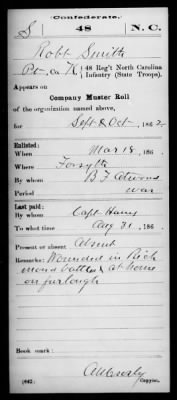 Confederate.
S 48 N.C.
Robt Smith
Pvt, Co. K, 48 Reg't North Carolina
Infantry (State Troops).
Appears on
Company Muster Roll
of the organization named above,
for Sept & Oct, 1862.
Enlisted:
When Mar 18, 186 .
Where Forsyth
By whom
Period war
Last paid:
By whom Capt Haws
To what time Aug 31, 186 .
Present or absent Absent
Remarks: Wounded in Rich
mond battles & at home
on furlough
Book mark:
(642) Copyist.